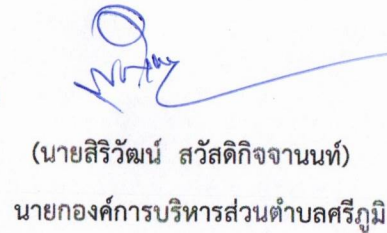 (นายสิริวัฒน์ สวัสดิกิจจานนท์)
นายกองค์การบริหารส่วนตำบลศรีภูมิ